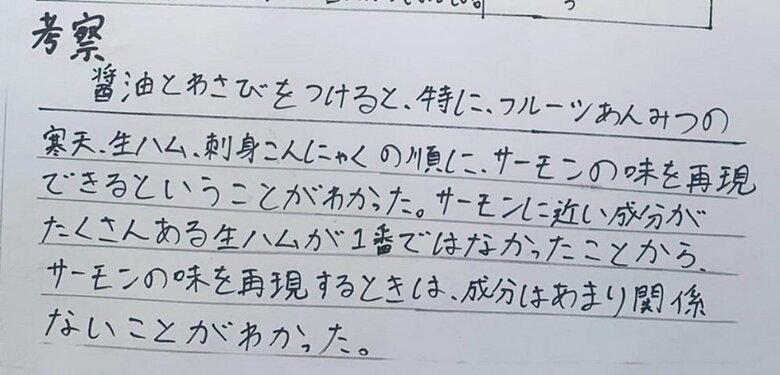 考察
醤油とわさびをつけると、特に、フルーツあんみつの
寒天、生ハム、刺身こんにゃくの順に、サーモンの味を再現
できるということがわかった。サーモンに近い成分が
たくさんある生ハムが1番ではなかったことから、
サーモンの味を再現するときは、成分はあまり関係
ないことがわかった。